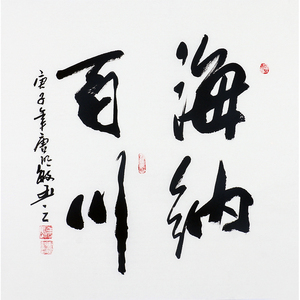 海纳
百川
庚子年唐明敏书